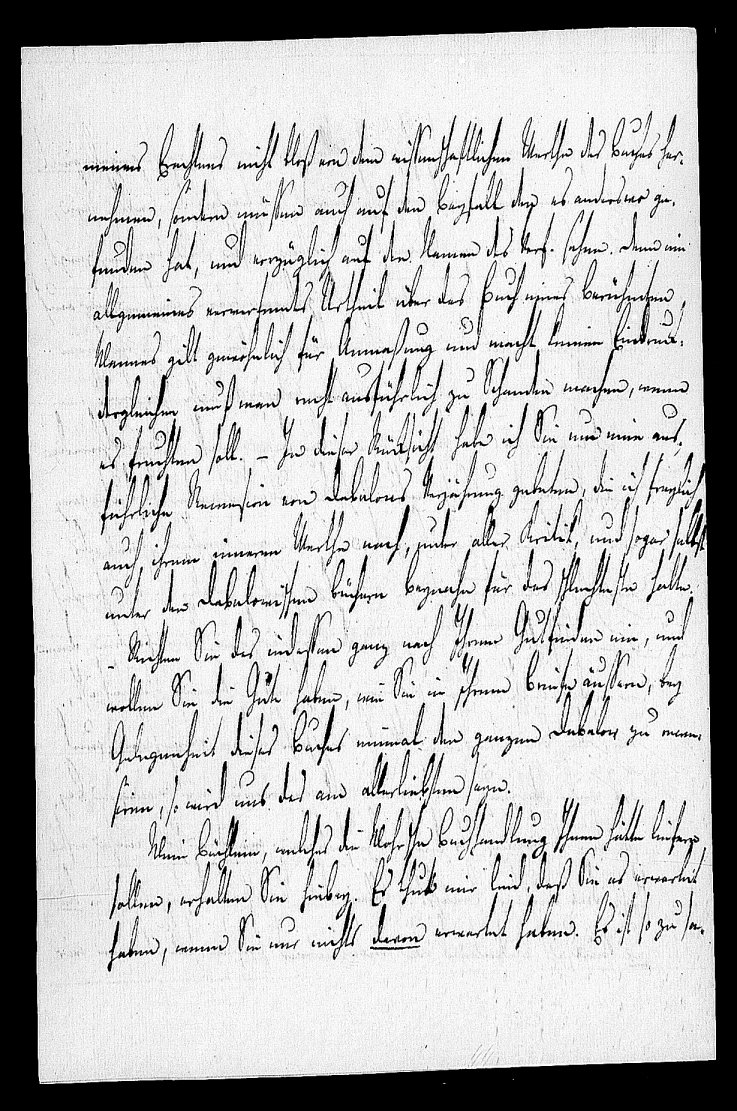 meines Erachtens nicht bloß von dem wissenschaftlichen Werthe des Buchs her-
nehmen, sondern müssen auch auf den Beyfall den es anderswo ge-
funden hat, und vorzüglich auf den Namen des Verf. sehen. Denn ein
allgemeines verwerfendes Urtheil über das Buch eines berühmten
Mannes gilt gewöhnlich für Anmaßung und macht keinen Eindruck.
dergleichen muß man recht ausführlich zu Schanden machen, wenn
es fruchten soll. – In dieser Rücksicht habe ich Sie um eine aus-
führliche Recension von Dabelows Verjährung gebeten, die ich freylich
auch ihrem inneren Werthe nach, unter aller Kritik, und sogar selbst
unter den Dabelowischen Büchern beynahe für das schlechteste halte.
Richten Sie das indessen ganz nach Ihrem Gutfinden ein, und
wollen Sie die Güte haben, wie Sie in Ihrem Briefe äussern, bey
Gelegenheit dieses Buches einmal den ganzen Dabelow zu recen-
siren, so wird uns das am allerliebsten seyn.
Mein Büchlein, welches die Mohrsche Buchhandlung Ihnen hätte liefern
sollen, erhalten Sie hiebey. Es thut mir leid, daß Sie es erwartet
haben, wenn Sie nur nichts davon erwartet haben. Es ist so zu sa-